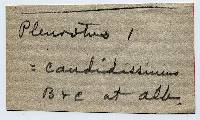 Pleurotus 1
= candidissimus
B & C at alb.